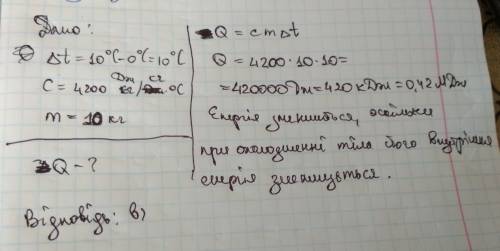 Дано:
Δt = 10°C - 0°C = 10°C
C = 4200 Дж/кг·°C
m = 10 кг
Q - ?
Відповідь: в)
Q = c m Δt
Q = 4200 · 10 · 10 =
= 420000 Дж = 420 кДж = 0,42 МДж
Енергія зменшиться, оскільки
при охолодженні тіла його внутрішня
енергія зменшується.